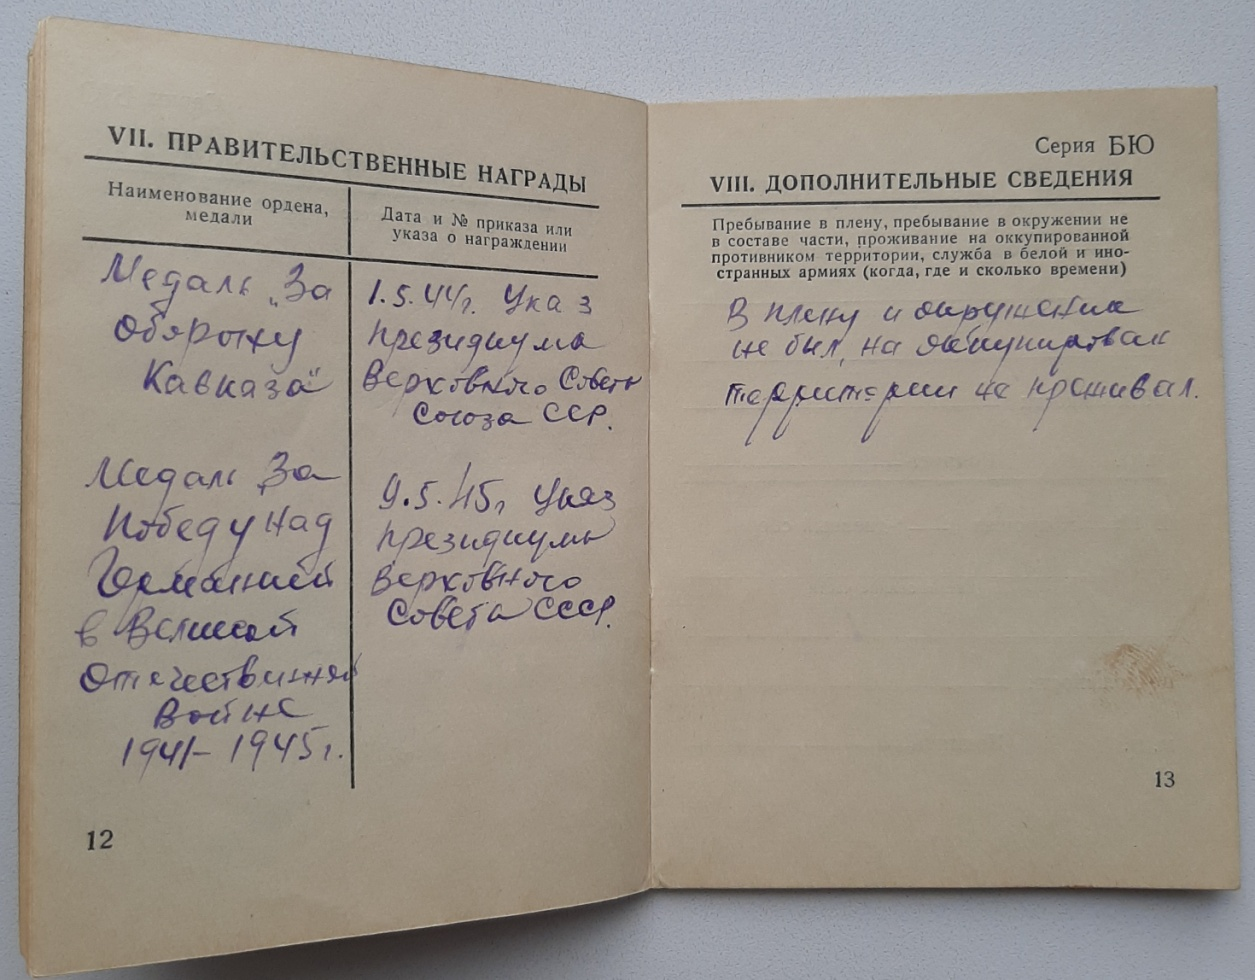 VII. ПРАВИТЕЛЬСТВЕННЫЕ НАГРАДЫ
Наименование ордена,
медали
Дата и № приказа или
указа о награждении
Медаль „За
Оборону
Кавказа"
1.5.44г. Указ
президиума
Верховного Совета
Союза ССР.
Медаль „За
Победу над
Германией
в Великой
Отечественной
Войне
1941–1945г.
9.5.45г Указ
президиума
Верховного
Совета СССР.
12
Серия БЮ
VIII. ДОПОЛНИТЕЛЬНЫЕ СВЕДЕНИЯ
Пребывание в плену, пребывание в окружении не
в составе части, проживание на оккупированной
противником территории, служба в белой и ино-
странных армиях (когда, где и сколько времени)
В плену и окружении
не был, на оккупирован
территории не проживал.
13